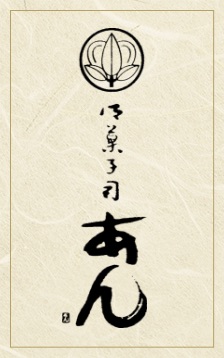 御菓子司
あん